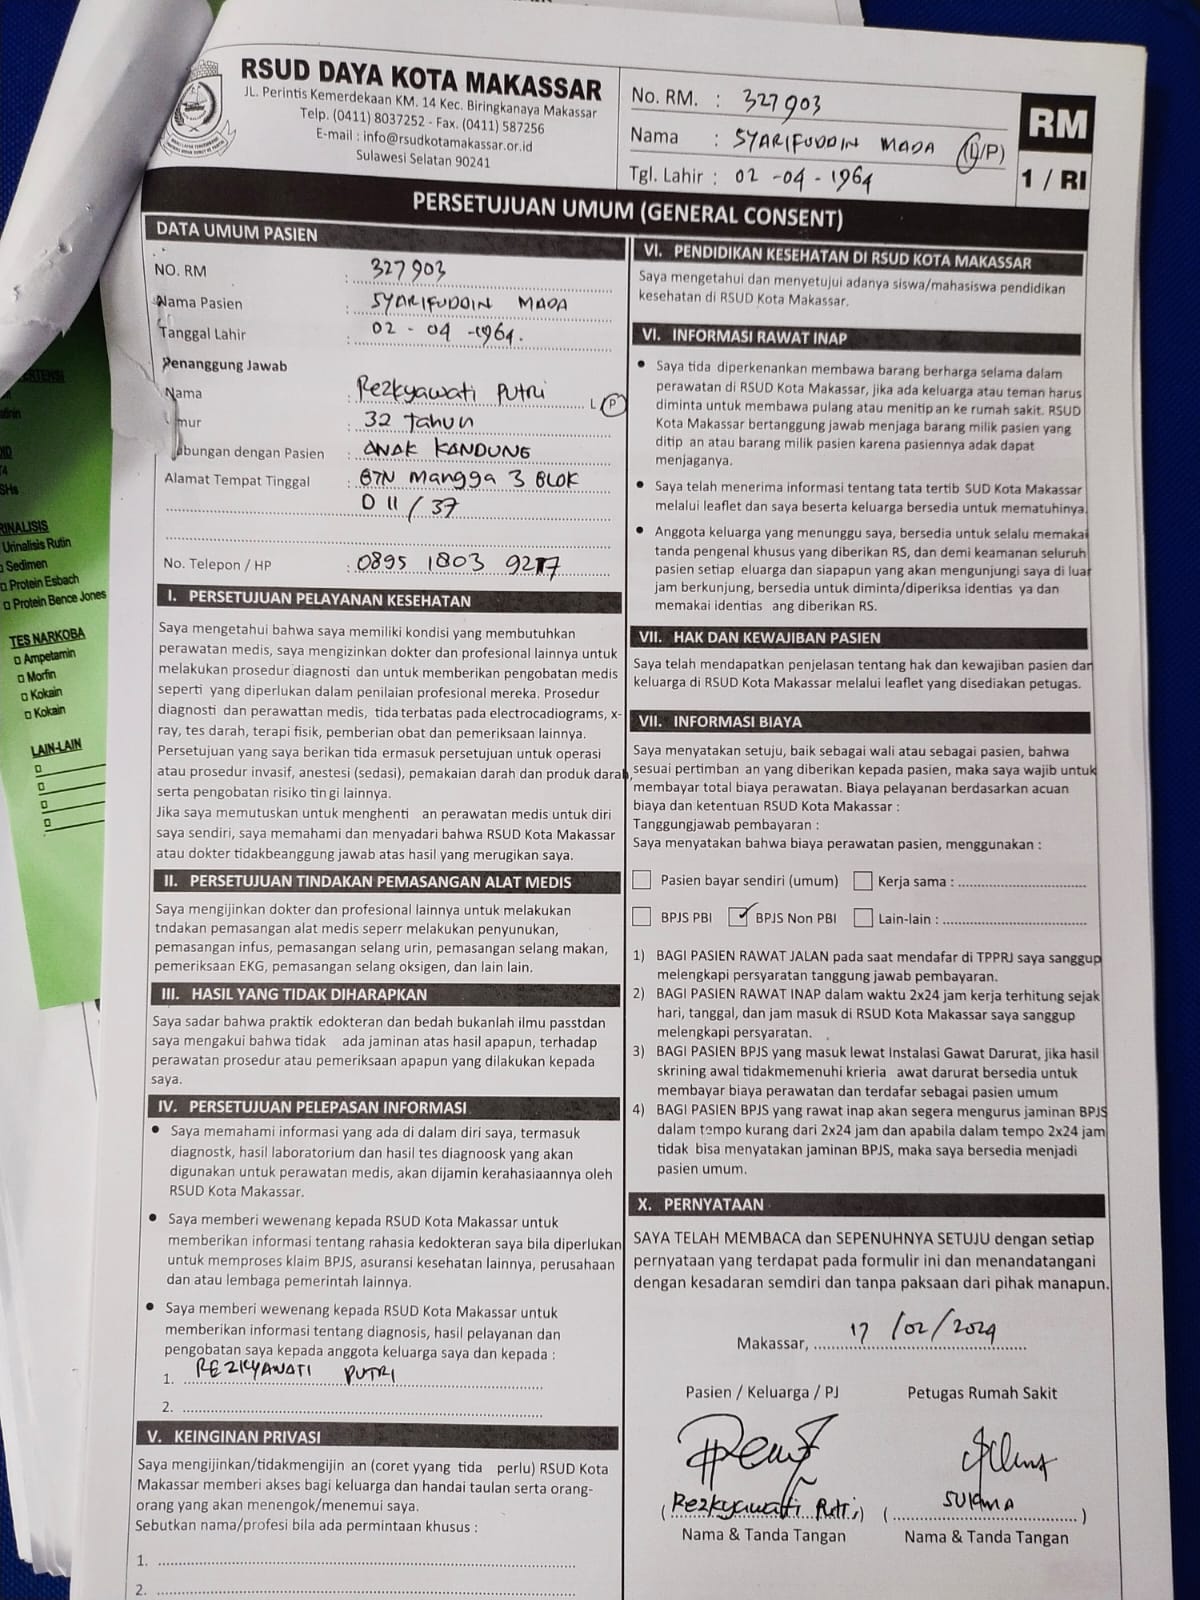 RSUD DAYA KOTA MAKASSAR
JL. Perintis Kemerdekaan KM. 14 Kec. Biringkanaya Makassar
Telp. (0411) 8037252 - Fax. (0411) 587256
E-mail : info@rsudkotamakassar.or.id
Sulawesi Selatan 90241
No. RM. : 327903
Nama : SYARIFUDDIN MADA (L/P)
Tgl. Lahir : 02 - 04 - 1964
RM
1 / RI
PERSETUJUAN UMUM (GENERAL CONSENT)
DATA UMUM PASIEN
NO. RM : 327903
Nama Pasien : SYARIFUDDIN MADA
Tanggal Lahir : 02 - 04 - 1964.
Penanggung Jawab
Nama : Rezkyawati Putri L (P)
mur : 32 Tahun
ubungan dengan Pasien : ANAK KANDUNG
Alamat Tempat Tinggal : BTN Mangga 3 BLOK
D 11 / 37
No. Telepon / HP : 0895 1803 9217
I. PERSETUJUAN PELAYANAN KESEHATAN
Saya mengetahui bahwa saya memiliki kondisi yang membutuhkan
perawatan medis, saya mengizinkan dokter dan profesional lainnya untuk
melakukan prosedur diagnosti dan untuk memberikan pengobatan medis
seperti yang diperlukan dalam penilaian profesional mereka. Prosedur
diagnosti dan perawattan medis, tida terbatas pada electrocadiograms, x-
ray, tes darah, terapi fisik, pemberian obat dan pemeriksaan lainnya.
Persetujuan yang saya berikan tida ermasuk persetujuan untuk operasi
atau prosedur invasif, anestesi (sedasi), pemakaian darah dan produk darah,
serta pengobatan risiko tin gi lainnya.
Jika saya memutuskan untuk menghenti an perawatan medis untuk diri
saya sendiri, saya memahami dan menyadari bahwa RSUD Kota Makassar
atau dokter tidakbeanggung jawab atas hasil yang merugikan saya.
II. PERSETUJUAN TINDAKAN PEMASANGAN ALAT MEDIS
Saya mengijinkan dokter dan profesional lainnya untuk melakukan
tndakan pemasangan alat medis seperr melakukan penyunukan,
pemasangan infus, pemasangan selang urin, pemasangan selang makan,
pemeriksaan EKG, pemasangan selang oksigen, dan lain lain.
III. HASIL YANG TIDAK DIHARAPKAN
Saya sadar bahwa praktik edokteran dan bedah bukanlah ilmu passtdan
saya mengakui bahwa tidak ada jaminan atas hasil apapun, terhadap
perawatan prosedur atau pemeriksaan apapun yang dilakukan kepada
saya.
IV. PERSETUJUAN PELEPASAN INFORMASI
• Saya memahami informasi yang ada di dalam diri saya, termasuk
diagnostk, hasil laboratorium dan hasil tes diagnoosk yang akan
digunakan untuk perawatan medis, akan dijamin kerahasiaannya oleh
RSUD Kota Makassar.
• Saya memberi wewenang kepada RSUD Kota Makassar untuk
memberikan informasi tentang rahasia kedokteran saya bila diperlukan
untuk memproses klaim BPJS, asuransi kesehatan lainnya, perusahaan
dan atau lembaga pemerintah lainnya.
• Saya memberi wewenang kepada RSUD Kota Makassar untuk
memberikan informasi tentang diagnosis, hasil pelayanan dan
pengobatan saya kepada anggota keluarga saya dan kepada :
1. REZKYAWATI PUTRI
2.
V. KEINGINAN PRIVASI
Saya mengijinkan/tidakmengijin an (coret yyang tida perlu) RSUD Kota
Makassar memberi akses bagi keluarga dan handai taulan serta orang-
orang yang akan menengok/menemui saya.
Sebutkan nama/profesi bila ada permintaan khusus :
1.
2.
VI. PENDIDIKAN KESEHATAN DI RSUD KOTA MAKASSAR
Saya mengetahui dan menyetujui adanya siswa/mahasiswa pendidikan
kesehatan di RSUD Kota Makassar.
VI. INFORMASI RAWAT INAP
• Saya tida diperkenankan membawa barang berharga selama dalam
perawatan di RSUD Kota Makassar, jika ada keluarga atau teman harus
diminta untuk membawa pulang atau menitip an ke rumah sakit. RSUD
Kota Makassar bertanggung jawab menjaga barang milik pasien yang
ditip an atau barang milik pasien karena pasiennya adak dapat
menjaganya.
• Saya telah menerima informasi tentang tata tertib SUD Kota Makassar
melalui leaflet dan saya beserta keluarga bersedia untuk mematuhinya.
• Anggota keluarga yang menunggu saya, bersedia untuk selalu memakai
tanda pengenal khusus yang diberikan RS, dan demi keamanan seluruh
pasien setiap eluarga dan siapapun yang akan mengunjungi saya di luar
jam berkunjung, bersedia untuk diminta/diperiksa identias ya dan
memakai identias ang diberikan RS.
VII. HAK DAN KEWAJIBAN PASIEN
Saya telah mendapatkan penjelasan tentang hak dan kewajiban pasien dan
keluarga di RSUD Kota Makassar melalui leaflet yang disediakan petugas.
VII. INFORMASI BIAYA
Saya menyatakan setuju, baik sebagai wali atau sebagai pasien, bahwa
sesuai pertimban an yang diberikan kepada pasien, maka saya wajib untuk
membayar total biaya perawatan. Biaya pelayanan berdasarkan acuan
biaya dan ketentuan RSUD Kota Makassar :
Tanggungjawab pembayaran :
Saya menyatakan bahwa biaya perawatan pasien, menggunakan :
☐ Pasien bayar sendiri (umum) ☐ Kerja sama :
☐ BPJS PBI ☑ BPJS Non PBI ☐ Lain-lain :
1) BAGI PASIEN RAWAT JALAN pada saat mendafar di TPPRJ saya sanggup
melengkapi persyaratan tanggung jawab pembayaran.
2) BAGI PASIEN RAWAT INAP dalam waktu 2x24 jam kerja terhitung sejak
hari, tanggal, dan jam masuk di RSUD Kota Makassar saya sanggup
melengkapi persyaratan.
3) BAGI PASIEN BPJS yang masuk lewat Instalasi Gawat Darurat, jika hasil
skrining awal tidakmemenuhi krieria awat darurat bersedia untuk
membayar biaya perawatan dan terdafar sebagai pasien umum
4) BAGI PASIEN BPJS yang rawat inap akan segera mengurus jaminan BPJS
dalam tempo kurang dari 2x24 jam dan apabila dalam tempo 2x24 jam
tidak bisa menyatakan jaminan BPJS, maka saya bersedia menjadi
pasien umum.
X. PERNYATAAN
SAYA TELAH MEMBACA dan SEPENUHNYA SETUJU dengan setiap
pernyataan yang terdapat pada formulir ini dan menandatangani
dengan kesadaran semdiri dan tanpa paksaan dari pihak manapun.
Makassar, 17 /02/2024
Pasien / Keluarga / PJ Petugas Rumah Sakit
(Rezkyawati Putri) (SUKMA)
Nama & Tanda Tangan Nama & Tanda Tangan
RINALISIS
Urinalisis Rutin
Sedimen
Protein Esbach
Protein Bence Jones
TES NARKOBA
Ampetamin
Morfin
Kokain
Kokain
LAIN-LAIN